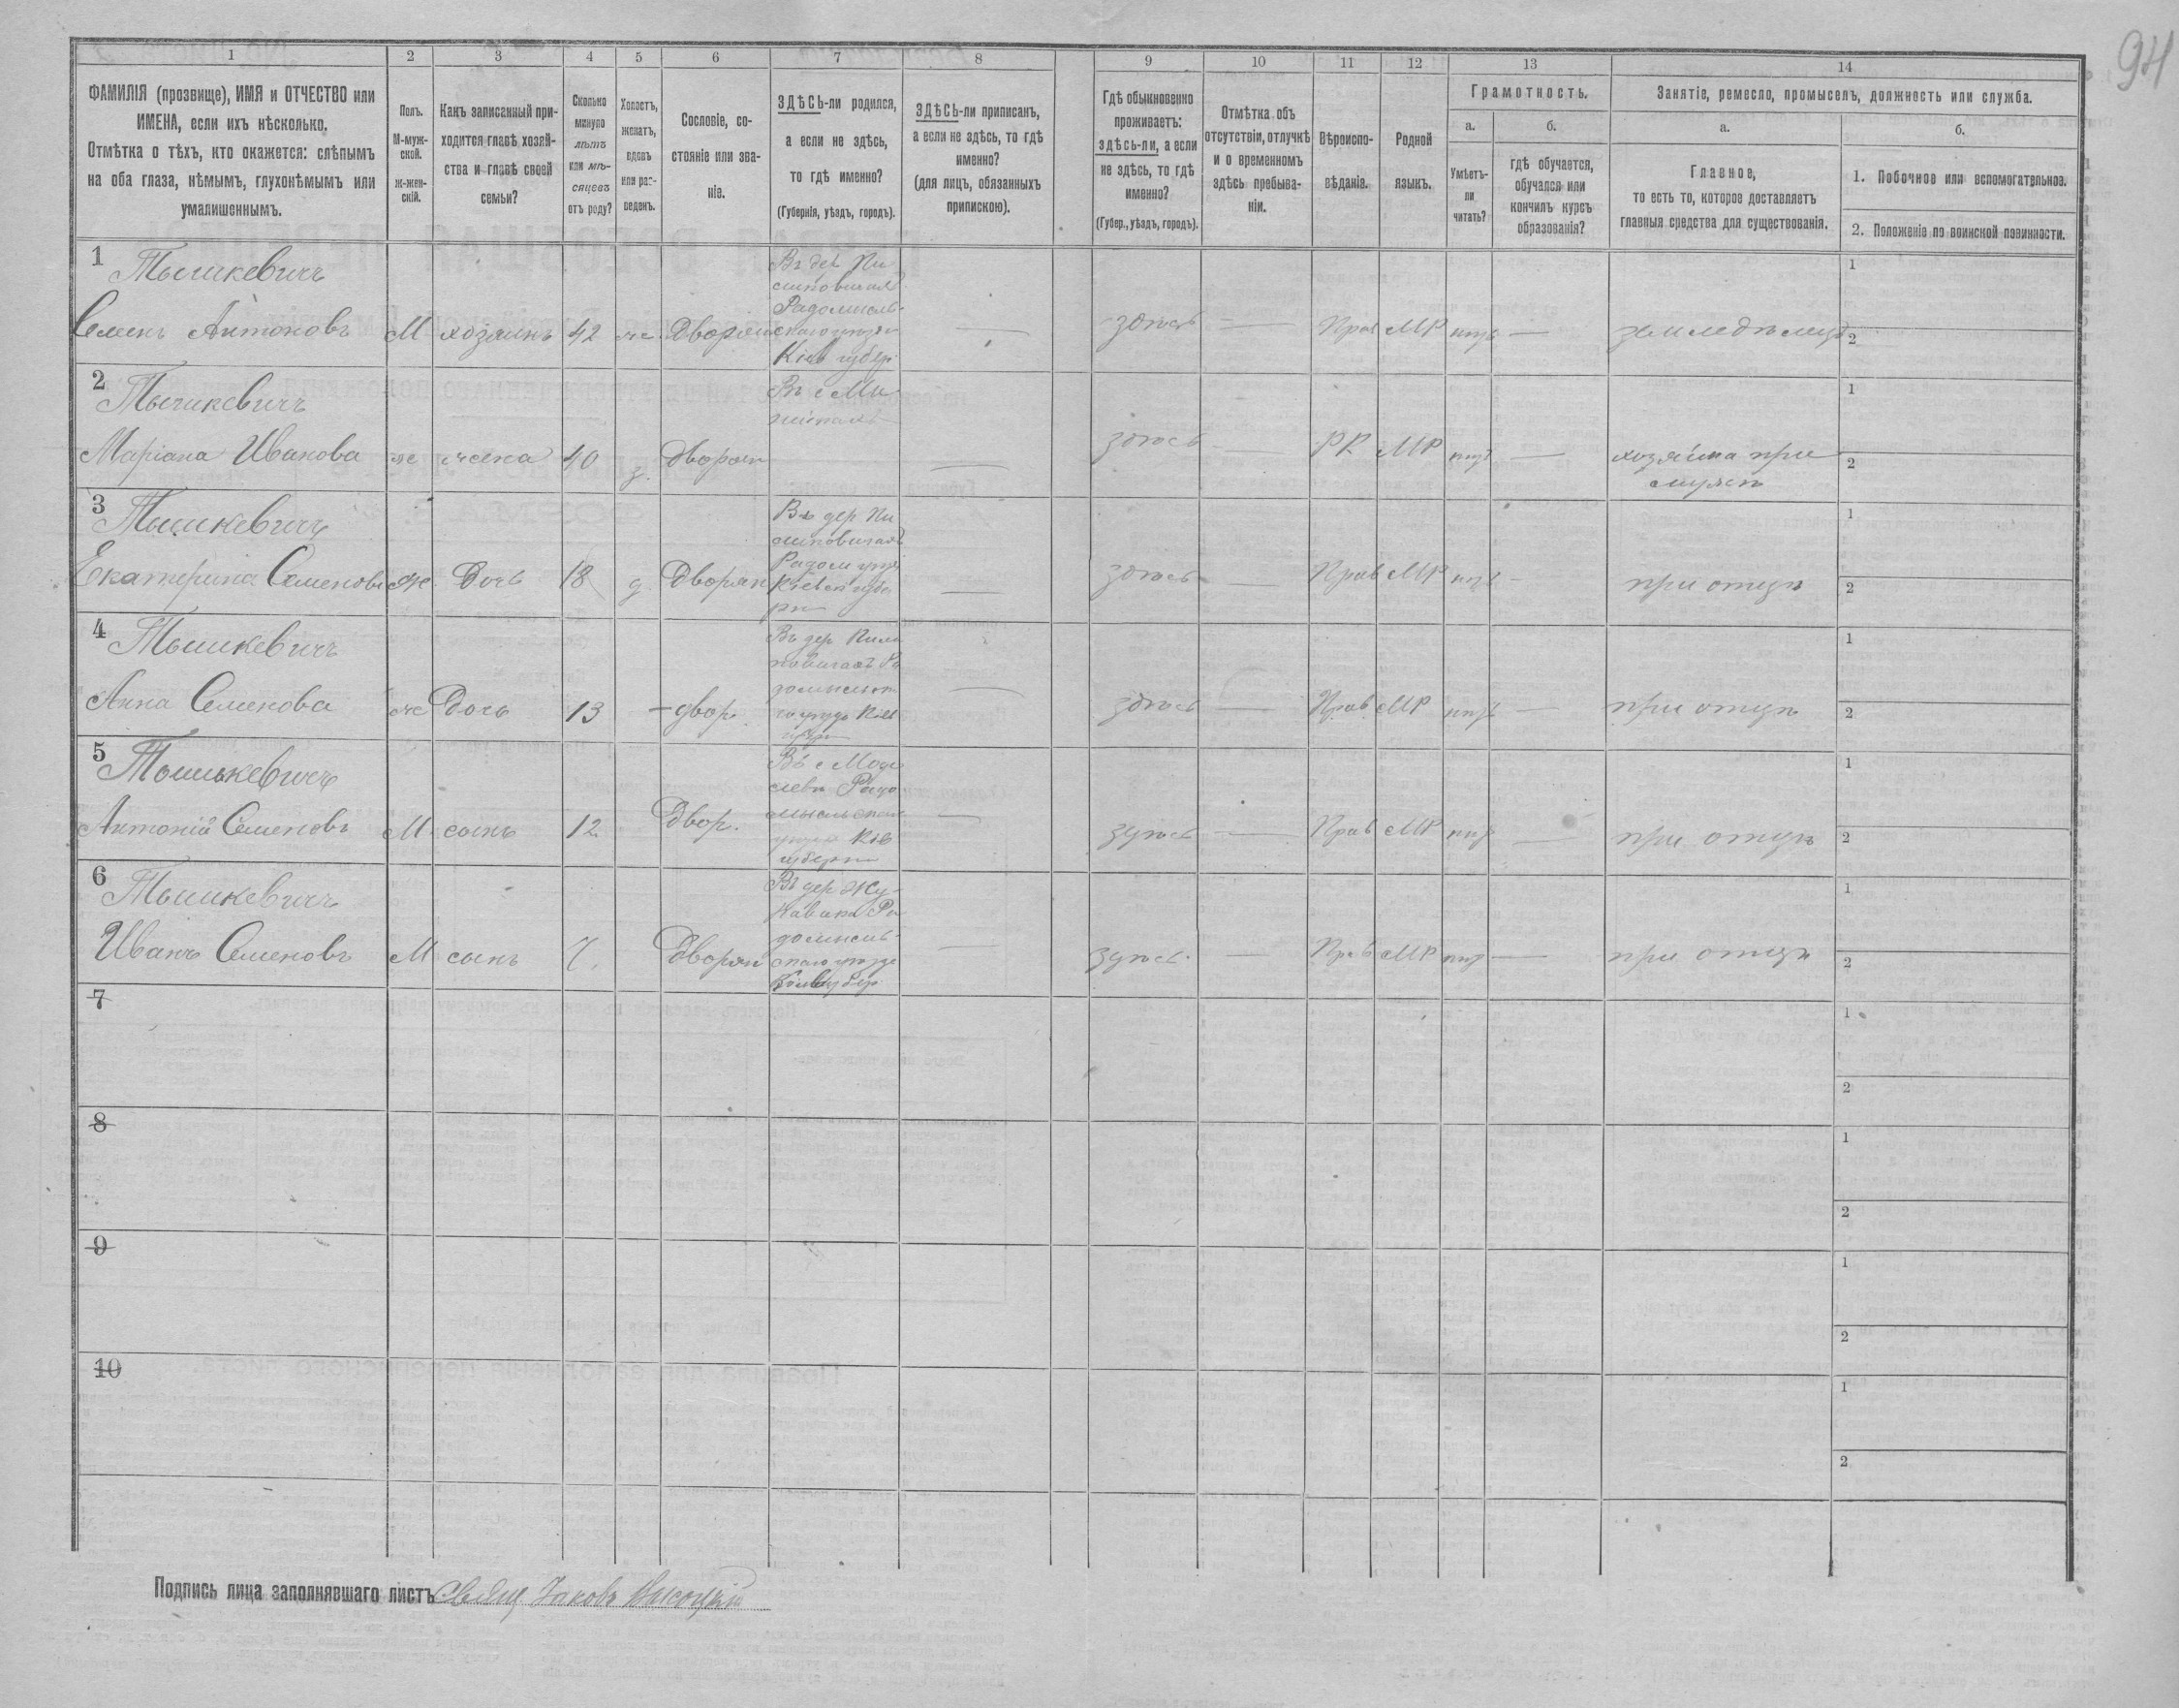 94
1 2 3 4 5 6 7 8 9 10 11 12 13 14
ФАМИЛІЯ (прозвище), ИМЯ и ОТЧЕСТВО или
ИМЕНА, если ихъ нѣсколько.
Отмѣтка о тѣхъ, кто окажется: слѣпымъ
на оба глаза, нѣмымъ, глухонѣмымъ или
умалишеннымъ.
Полъ.
М-муж-
ской.
Ж-жен-
скій.
Какъ записанный при-
ходится главѣ хозяй-
ства и главѣ своей
семьи?
Сколько
минуло
лѣтъ
или мѣ-
сяцевъ
отъ роду?
Холостъ,
женатъ,
вдовъ
или раз-
веденъ.
Сословіе, со-
стояніе или зва-
ніе.
ЗДѢСЬ-ли родился,
а если не здѣсь,
то гдѣ именно?
(Губернія, уѣздъ, городъ).
ЗДѢСЬ-ли приписанъ,
а если не здѣсь, то гдѣ
именно?
(для лицъ, обязанныхъ
припискою).
Гдѣ обыкновенно
проживаетъ:
здѣсь-ли, а если
не здѣсь, то гдѣ
именно?
(Губер., уѣздъ, городъ).
Отмѣтка объ
отсутствіи, отлучкѣ
и о временномъ
здѣсь пребыва-
ніи.
Вѣроиспо-
вѣданіе.
Родной
языкъ.
Грамотность.
а.
Умѣетъ-
ли
читать?
б.
гдѣ обучается,
обучался или
кончилъ курсъ
образованія?
Занятіе, ремесло, промыселъ, должность или служба.
а.
Главное,
то есть то, которое доставляетъ
главныя средства для существованія.
б.
1. Побочное или вспомогательное.
2. Положеніе по воинской повинности.
1 Тышкевичъ
Семенъ Антоновъ М хозяинъ 42 же. Дворян
Радомысль-
скаго уѣзда
Кіев губер
— здѣсь — Прав МР — земледѣлецъ
1
2
2 Тышкевичъ
Маріана Иванова же жена 40 з. Дворян
— здѣсь — РК МР — хозяйка при
мужѣ
1
2
3 Тышкевичъ
Екатерина Семенова Ж. Дочь 18 д Дворян
Въ дер Пи
Радом уѣз
— здѣсь — Прав МР — при отцѣ
1
2
4 Тышкевичъ
Анна Семенова же Дочь 13 — двор.
Въ дер Пили
— здѣсь — Прав МР — при отцѣ
1
2
5 Тышкевичъ
Антоній Семеновъ М сынъ 12 Двор.
Радо
мысльскаго
уѣзда Кіев
губерн
— здѣсь — Прав МР — при отцѣ
1
2
6 Тышкевичъ
Иванъ Семеновъ М сынъ 7. Дворян
Въ дер Жу-
домысль-
скаго уѣзда
— здѣсь. — Прав МР — при отцѣ
1
2
7
1
2
8
1
2
9
1
2
10
1
2
Подпись лица заполнявшаго листъ Свящ Іаковъ